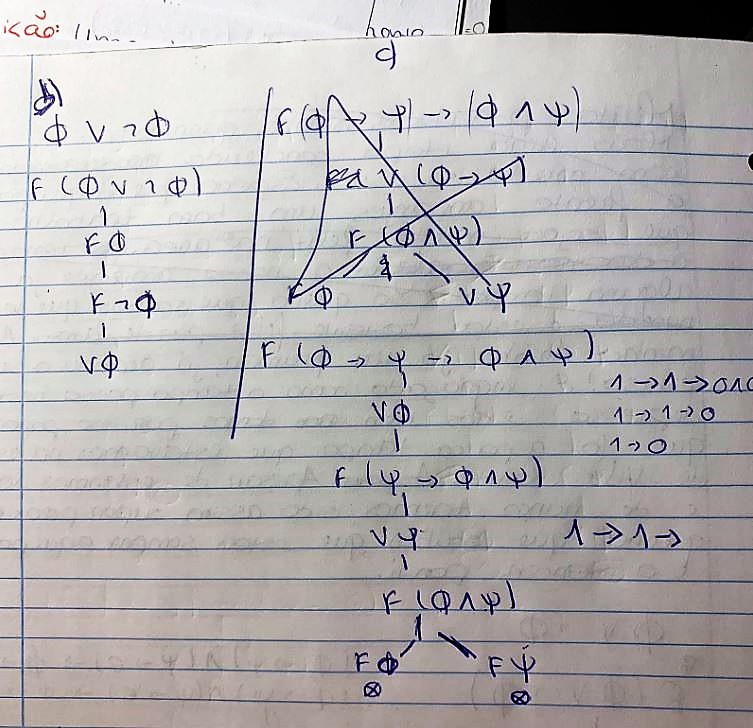 ição:
c)
b)
Φ ∨ ¬Φ
F (Φ ∨ ¬Φ)
F Φ
F ¬Φ
VΦ
F (Φ → Ψ) → (Φ ∧ Ψ)
V (Φ → Ψ)
F (Φ ∧ Ψ)
F Φ V Ψ
F (Φ → Ψ → Φ ∧ Ψ)
VΦ
F (Ψ → Φ ∧ Ψ)
V Ψ
F (Φ ∧ Ψ)
F Φ F Ψ
⊗ ⊗
1 → 1 → 0∧0
1 → 1 → 0
1 → 0
1 → 1 →